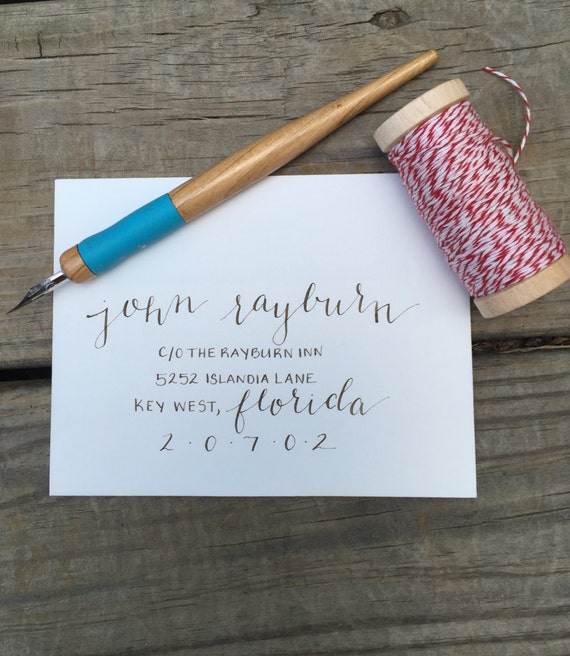 john rayburn
C/O THE RAYBURN INN
5252 ISLANDIA LANE
KEY WEST, florida
2·0·7·0·2